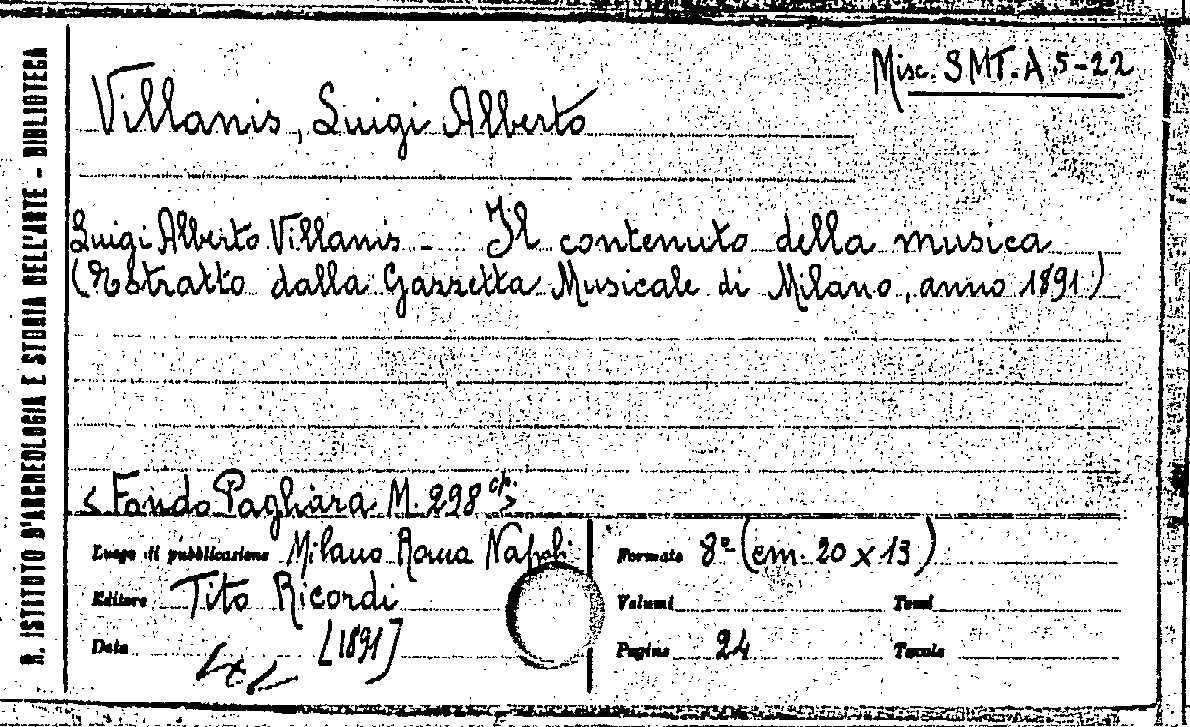 Misc. SMT. A 5-22
Villanis, Luigi Alberto
Luigi Alberto Villanis - Il contenuto della musica
(Estratto dalla Gazzetta Musicale di Milano, anno 1891)
R. ISTITUTO D'ARCHEOLOGIA E STORIA DELL'ARTE - BIBLIOTECA
< Fondo Pagliara M. 298 >
Luogo di pubblicazione Milano Roma Napoli
Formato 8º (cm. 20 x 13)
Editore Tito Ricordi
Volumi Tomi
Data [1891]
Pagine 24 Tavole